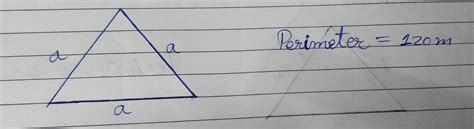 a
a
a
Perimeter = 120m